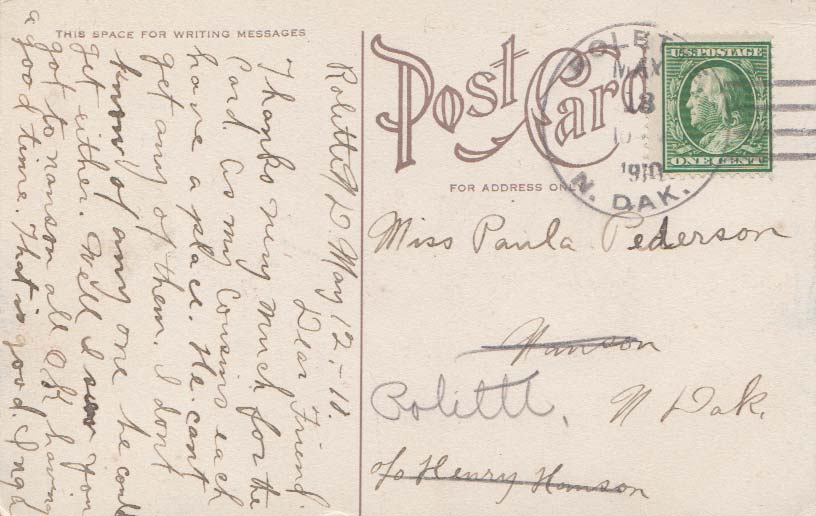 THIS SPACE FOR WRITING MESSAGES
Rolette N D May 12. - 10.
Dear Friend.
Thanks very much for the
Card. as my Cousins each
have a place. He cant
get any of them. I dont
know of any one he could
get either. Well I seen you
got to nanson all OK having
a good time. That is good
Post Card
FOR ADDRESS ONLY
ROLETTE
MAY
13
1910
N. DAK.
U.S. POSTAGE
ONE CENT
Miss Paula Pederson
Hanson
Rolette, N Dak.
c/o Henry Hanson